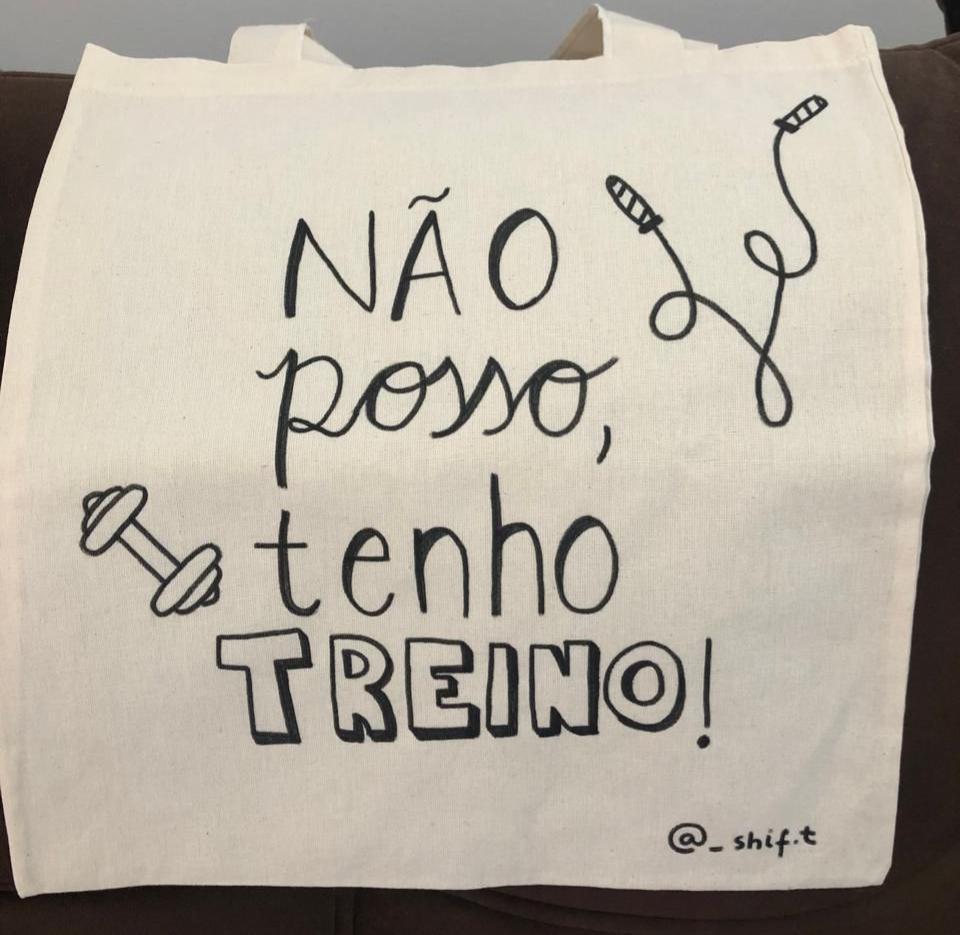 NÃO
posso,
tenho
TREINO!
@_shif.t